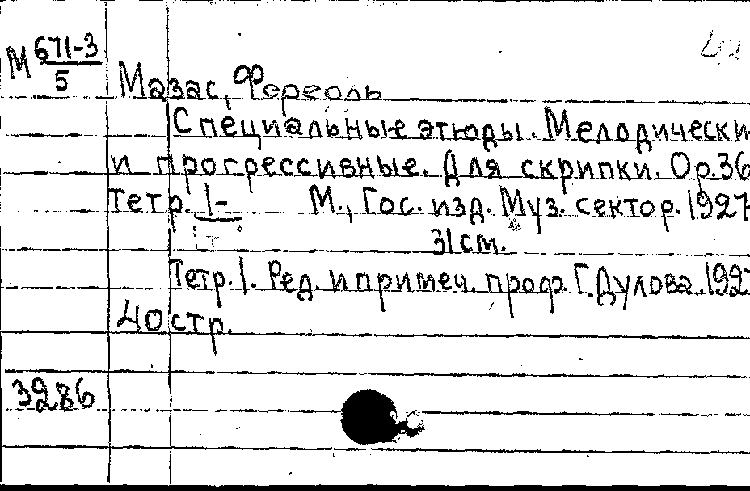 М 671-3
5
Мазас, Фереоль
Специальные этюды. Мелодически
и прогрессивные. Для скрипки. Op.36
Тетр. 1- М., Гос. изд. Муз. сектор. 1927
31 см.
Тетр. 1. Ред. и примеч. проф. Г. Дулова. 192
40 стр.
3286